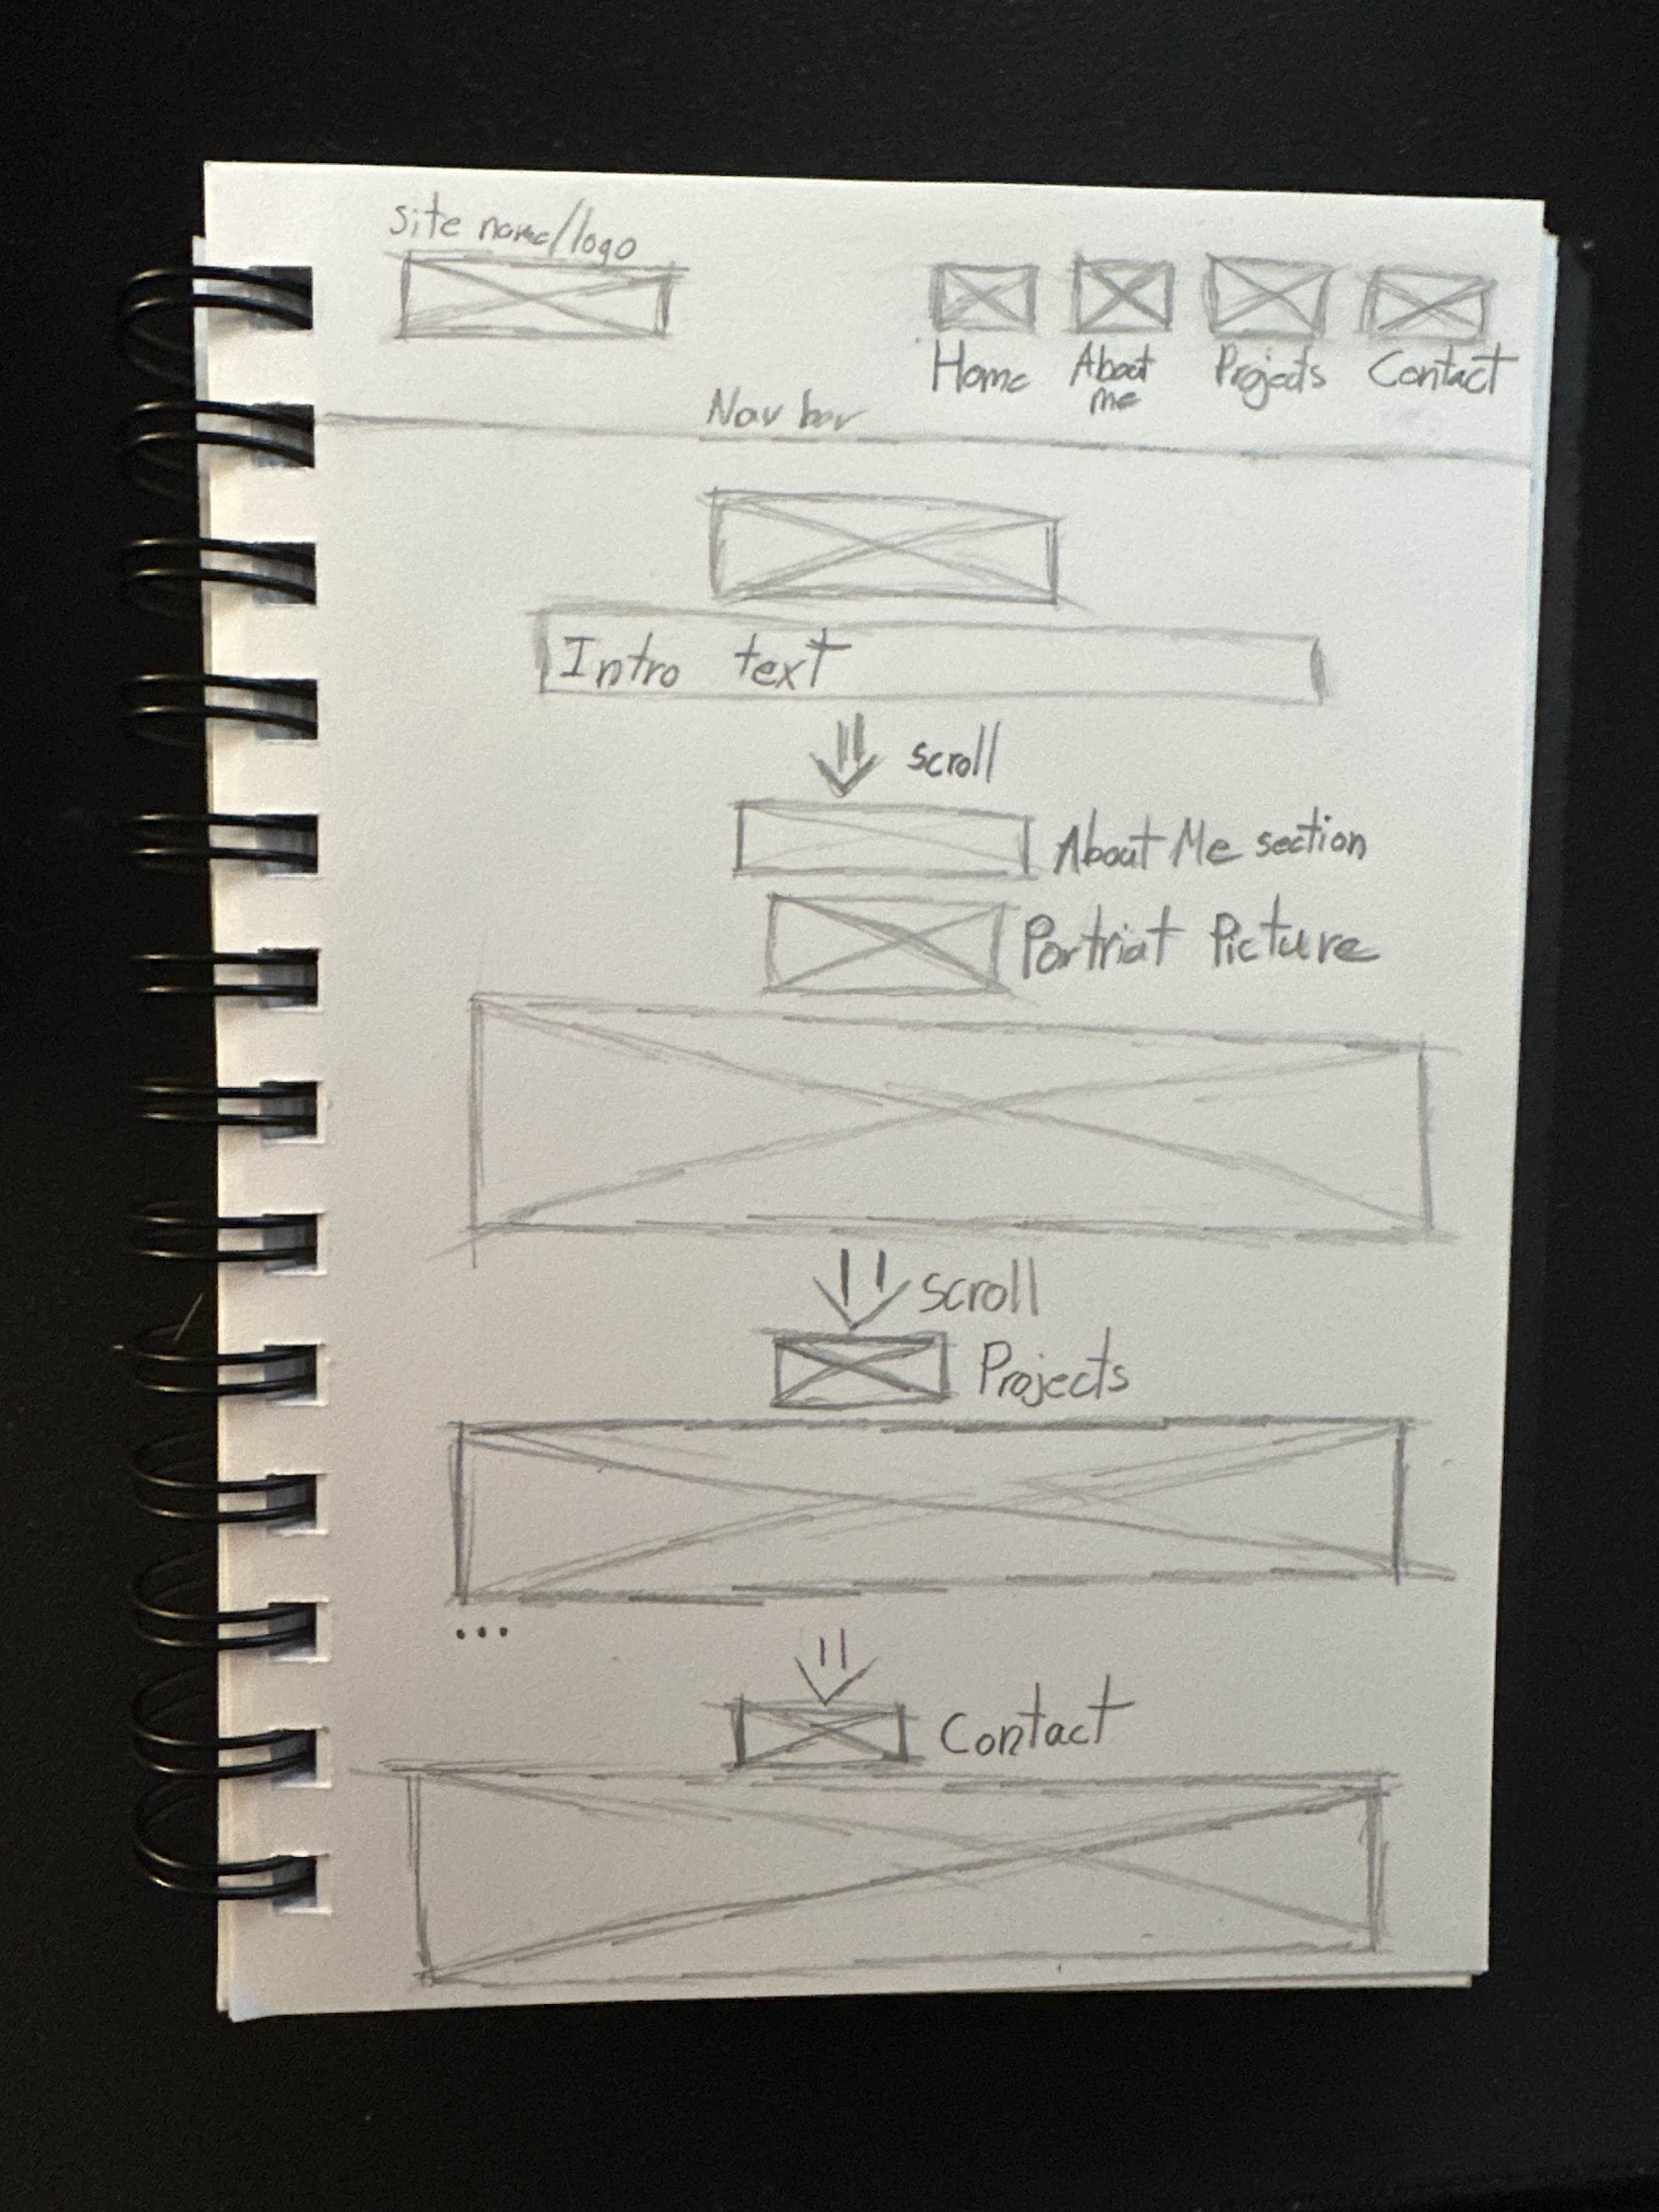 Site name/logo
Home
About
me
Projects
Contact
Nav bar
Intro text
scroll
About Me section
Portriat Picture
scroll
Projects
...
Contact